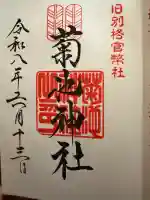 旧別格官幣社
菊池神社
令和八年二月十三日